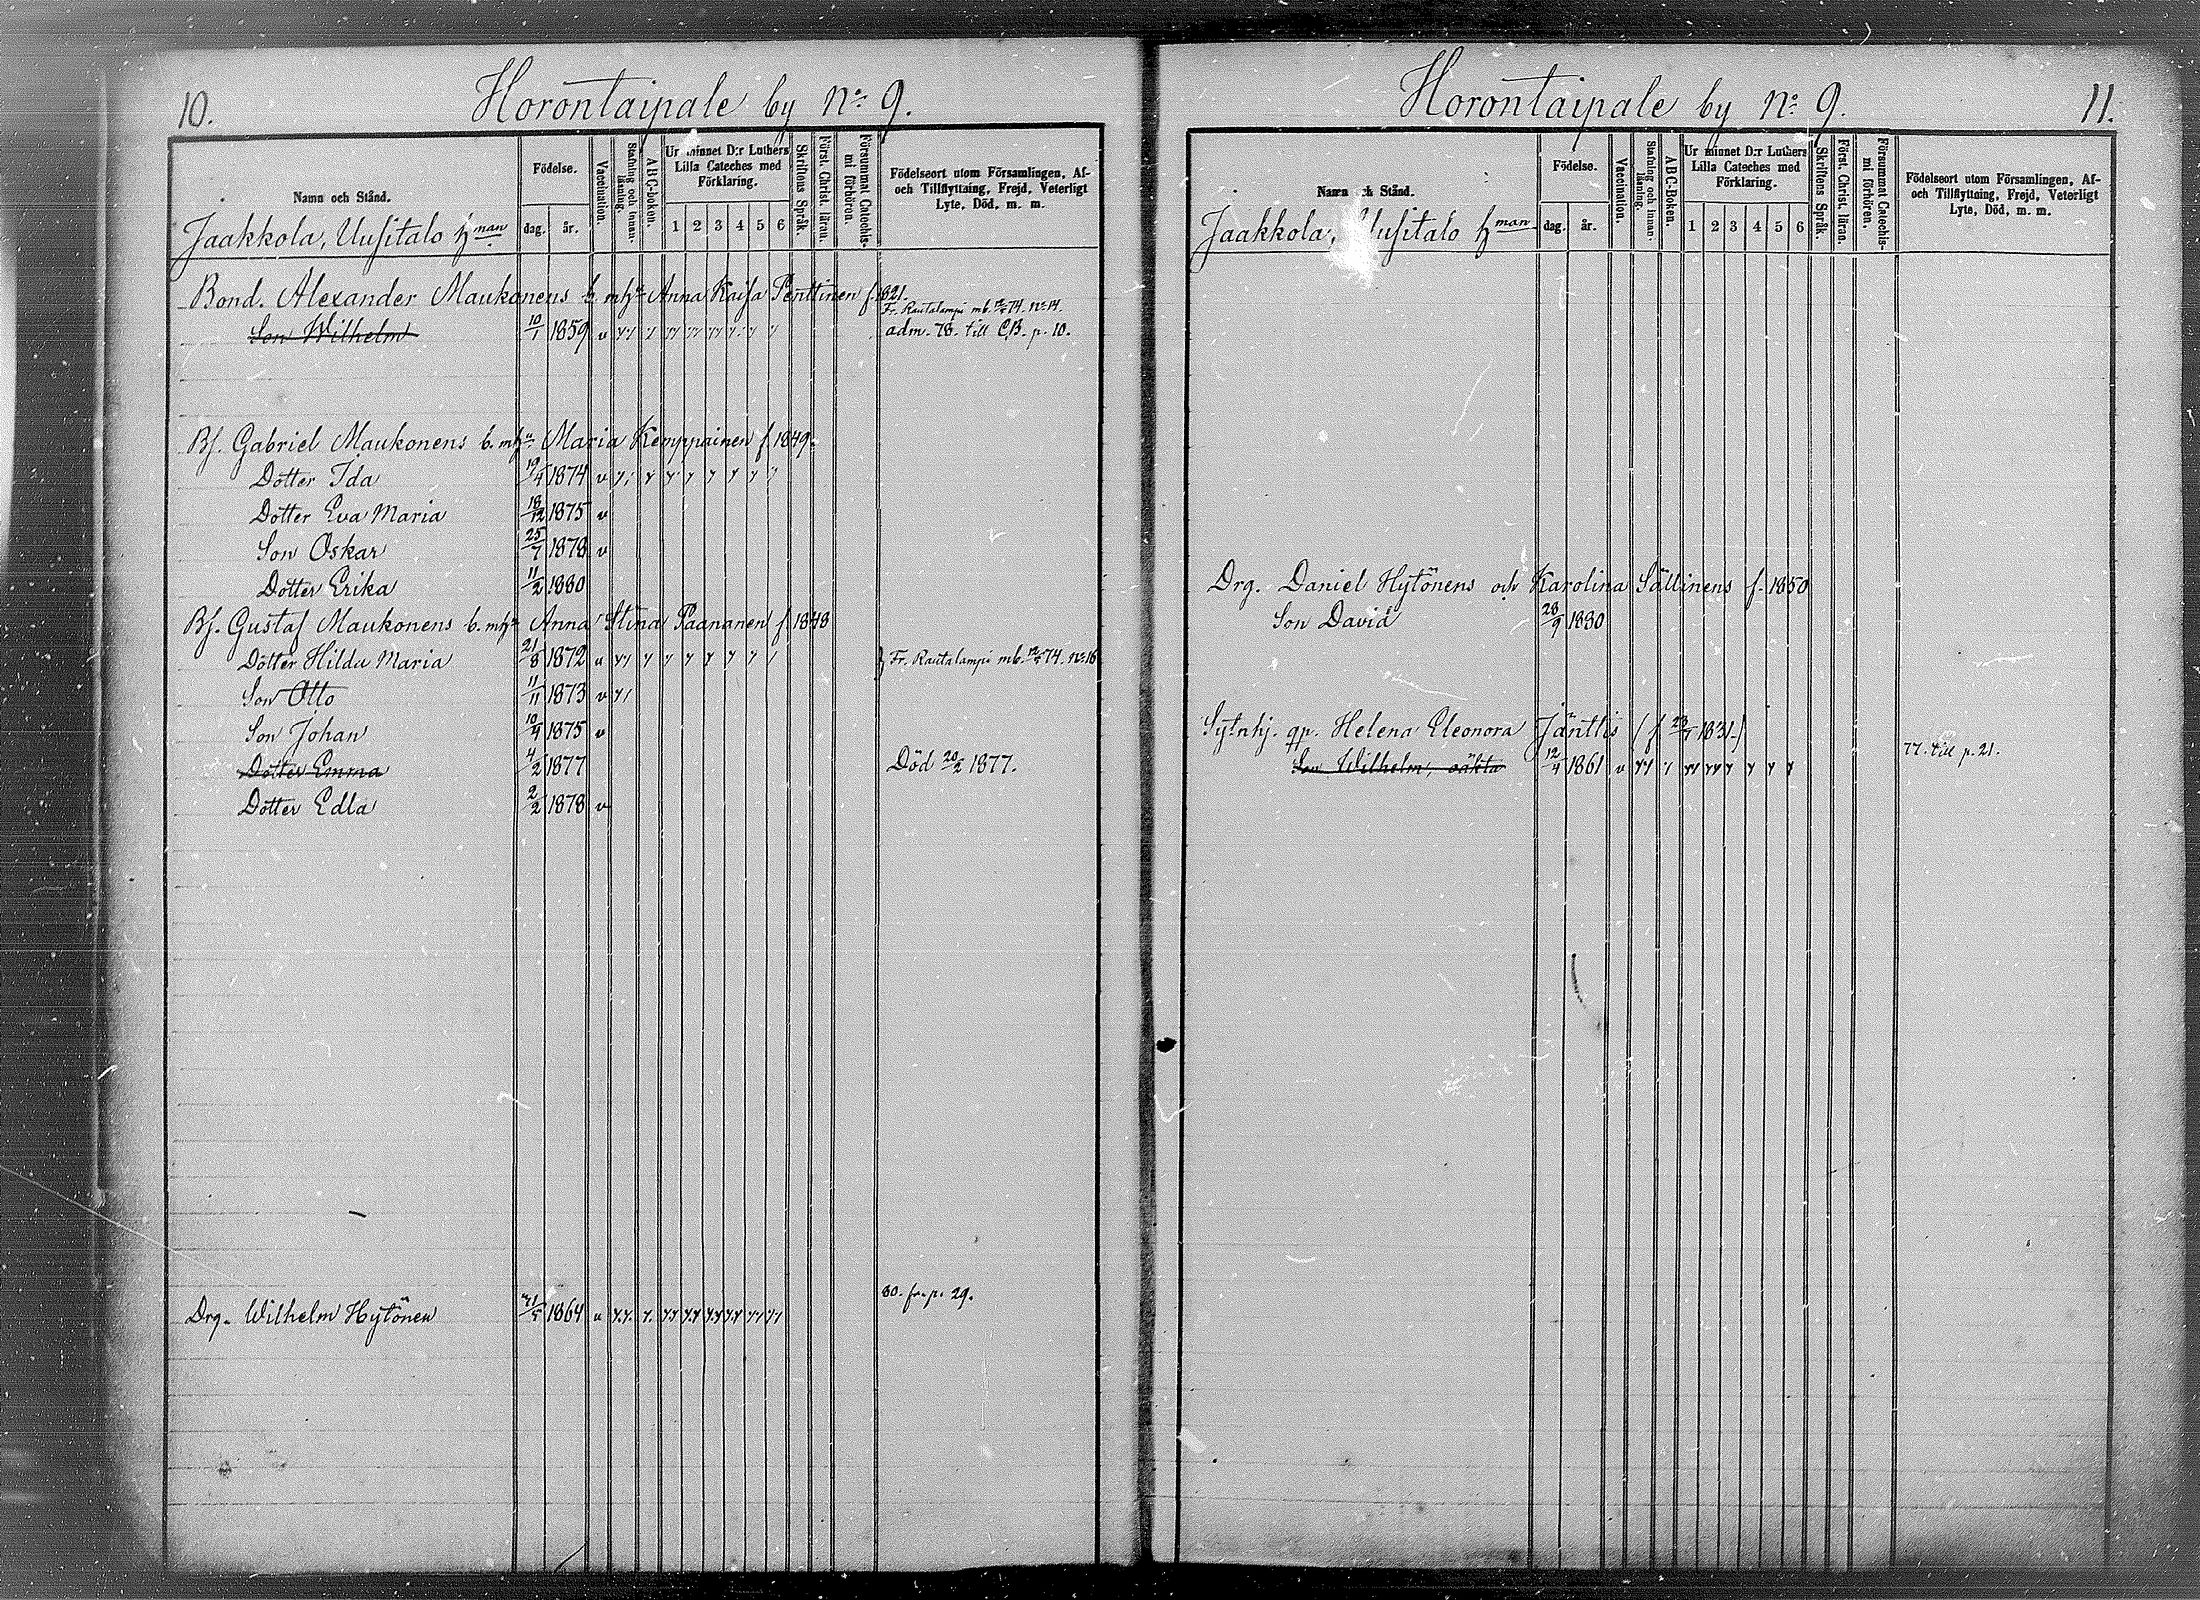 10.
Horontaipale by No 9.
Namn och Stånd.
Födelse.
dag. år.
Vaccination.
Stafning och innan-läsning.
ABC-boken.
Ur minnet D:r Luthers Lilla Cateches med Förklaring.
1 2 3 4 5 6
Skriftens Språk.
Först. Christ. läran.
Försummat Catechis-mi förhören.
Födelseort utom Församlingen, Af- och Tillflyttning, Frejd, Veterligt Lyte, Död, m. m.
Jaakkola, Uusitalo hman
Bond. Alexander Maukonens b. mhu Anna Kaisa Penttinen f. 1821.
Fr. Rautalampi mb. 74. No 14.
Son Wilhelm 10/1 1859 v adm. 78. till CB. p. 10.
Bs. Gabriel Maukonens b. mhu Maria Kemppainen f. 1849.
Dotter Ida 19/4 1874 v
Dotter Eva Maria 18/12 1875 v
Son Oskar 25/7 1878 v
Dotter Erika 11/2 1880
Bs. Gustaf Maukonens b. mhu Anna Stina Paananen f. 1848
Dotter Hilda Maria 21/8 1872 v Fr. Rautalampi mb. 74. No 16
Son Otto 11/11 1873 v
Son Johan 10/4 1875 v
Dotter Emma 4/2 1877 Död 20/2 1877.
Dotter Edla 2/2 1878 v
80. fr. p. 29.
Drg. Wilhelm Hytönen 1864 v
Horontaipale by No 9.
11.
Namn och Stånd.
Födelse.
dag. år.
Vaccination.
Stafning och innan-läsning.
ABC-boken.
Ur minnet D:r Luthers Lilla Cateches med Förklaring.
1 2 3 4 5 6
Skriftens Språk.
Först. Christ. läran.
Försummat Catechis-mi förhören.
Födelseort utom Församlingen, Af- och Tillflyttning, Frejd, Veterligt Lyte, Död, m. m.
Jaakkola, Uusitalo hman
Drg. Daniel Hytönens och Karolina Sällinens f. 1850
Son David 28/9 1880
Sytnhj. qp. Helena Eleonora Jänttis (f. 1831.)
77. till p. 21.
Son Wilhelm, oäkta 12/4 1861 v